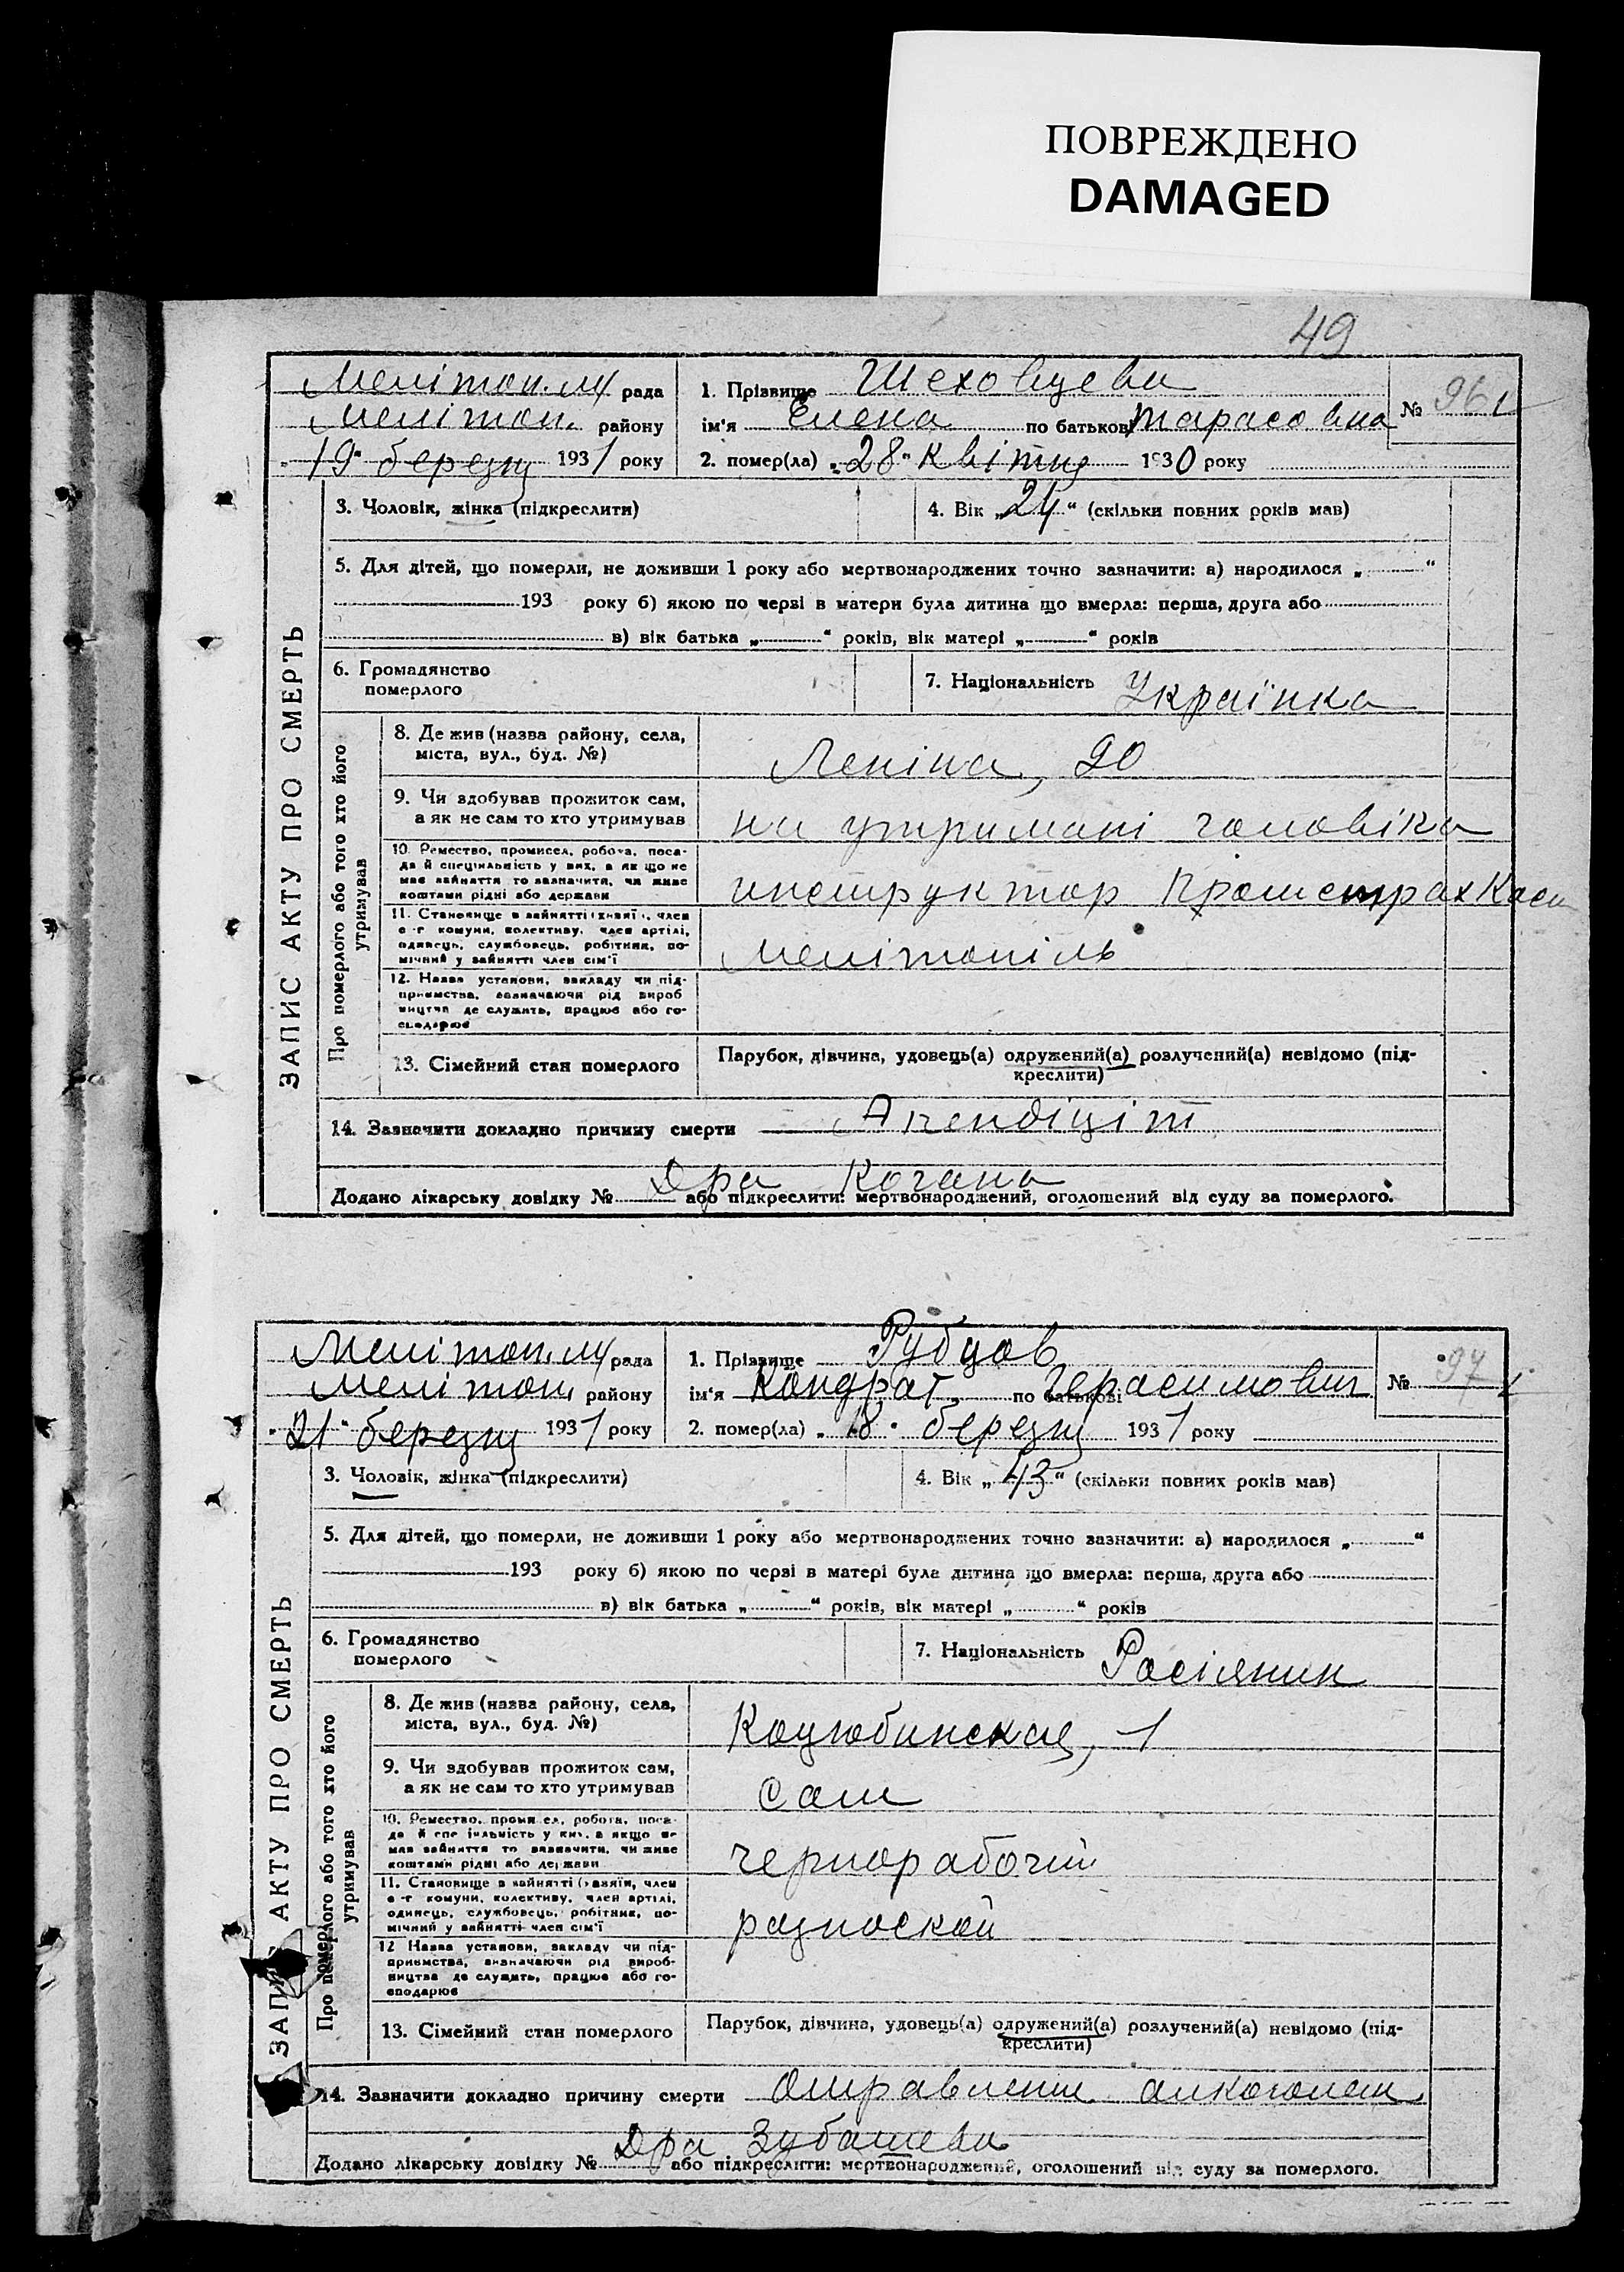 ПОВРЕЖДЕНО
DAMAGED
49
Мелітоп. м/ рада
Мелітоп. району
„19“ березня 1931 року
1. Прізвище Шеховцева
ім'я Елена по батькові Тарасовна
№ 96
2. помер(ла) „28“ Квітня 1930 року
3. Чоловік, жінка (підкреслити)
4. Вік „24“ (скільки повних років мав)
5. Для дітей, що померли, не доживши 1 року або мертвонароджених точно зазначити: а) народилося „ “
193 року б) якою по черзі в матери була дитина що вмерла: перша, друга або
в) вік батька „ “ років, вік матері „ “ років
6. Громадянство
померлого
7. Національність Українка
ЗАПИС АКТУ ПРО СМЕРТЬ
Про померлого або того хто його
утримував
8. Де жив (назва району, села,
міста, вул., буд. №)
Леніна, 90
9. Чи здобував прожиток сам,
а як не сам то хто утримував
на утримані чоловіка
10. Ремество, промисел, робота, поса-
да й спеціяльність у них, а як що не
має зайняття то зазначити, чи живе
коштами рідні або держави
инструктор Промстрах Каси
11. Становище в зайнятті (хазяїн, член
с-г комуни, колективу, член артілі,
одинець, службовець, робітник, по-
мічний у зайнятті член сім'ї
Мелітопіль
12. Назва установи, закладу чи під-
приємства, зазначаючи рід вироб
ництва де служить, працює або го-
сподарює
13. Сімейний стан померлого
Парубок, дівчина, удовець(а) одружений(а) розлучений(а) невідомо (під-
креслити)
14. Зазначити докладно причину смерти Апендіціт
Дра Когана
Додано лікарську довідку № або підкреслити: мертвонароджений, оголошений від суду за померлого.
Мелітоп. м/ рада
Мелітоп. району
„21“ березня 1931 року
1. Прізвище Рубцов
ім'я Кондрат по батькові Герасимович
№ 97
2. помер(ла) „18“ березня 1931 року
3. Чоловік, жінка (підкреслити)
4. Вік „43“ (скільки повних років мав)
5. Для дітей, що померли, не доживши 1 року або мертвонароджених точно зазначити: а) народилося „ “
193 року б) якою по черзі в матері була дитина що вмерла: перша, друга або
в) вік батька „ “ років, вік матері „ “ років
6. Громадянство
померлого
7. Національність Росіянин
ЗАПИС АКТУ ПРО СМЕРТЬ
Про померлого або того хто його
утримував
8. Де жив (назва району, села,
міста, вул., буд. №)
Коцюбинская, 1
9. Чи здобував прожиток сам,
а як не сам то хто утримував
Сам
10. Ремество, промисел, робота, поса-
да й спеціяльність у них, а якщо не
має зайняття то зазначити, чи живе
коштами рідні або держави
чернорабочий
11. Становище в зайнятті (хазяїн, член
с-г комуни, колективу, член артілі,
одинець, службовець, робітник, по-
мічний у зайнятті член сім'ї
12 Назва установи, закладу чи під-
приємства, визначаючи рід вироб-
ництва де служить, працює або го-
сподарює
13. Сімейний стан померлого
Парубок, дівчина, удовець(а) одружений(а) розлучений(а) невідомо (під-
креслити)
14. Зазначити докладно причину смерти Отравление алкоголем
Дра Зубашева
Додано лікарську довідку № або підкреслити: мертвонароджений, оголошений від суду за померлого.